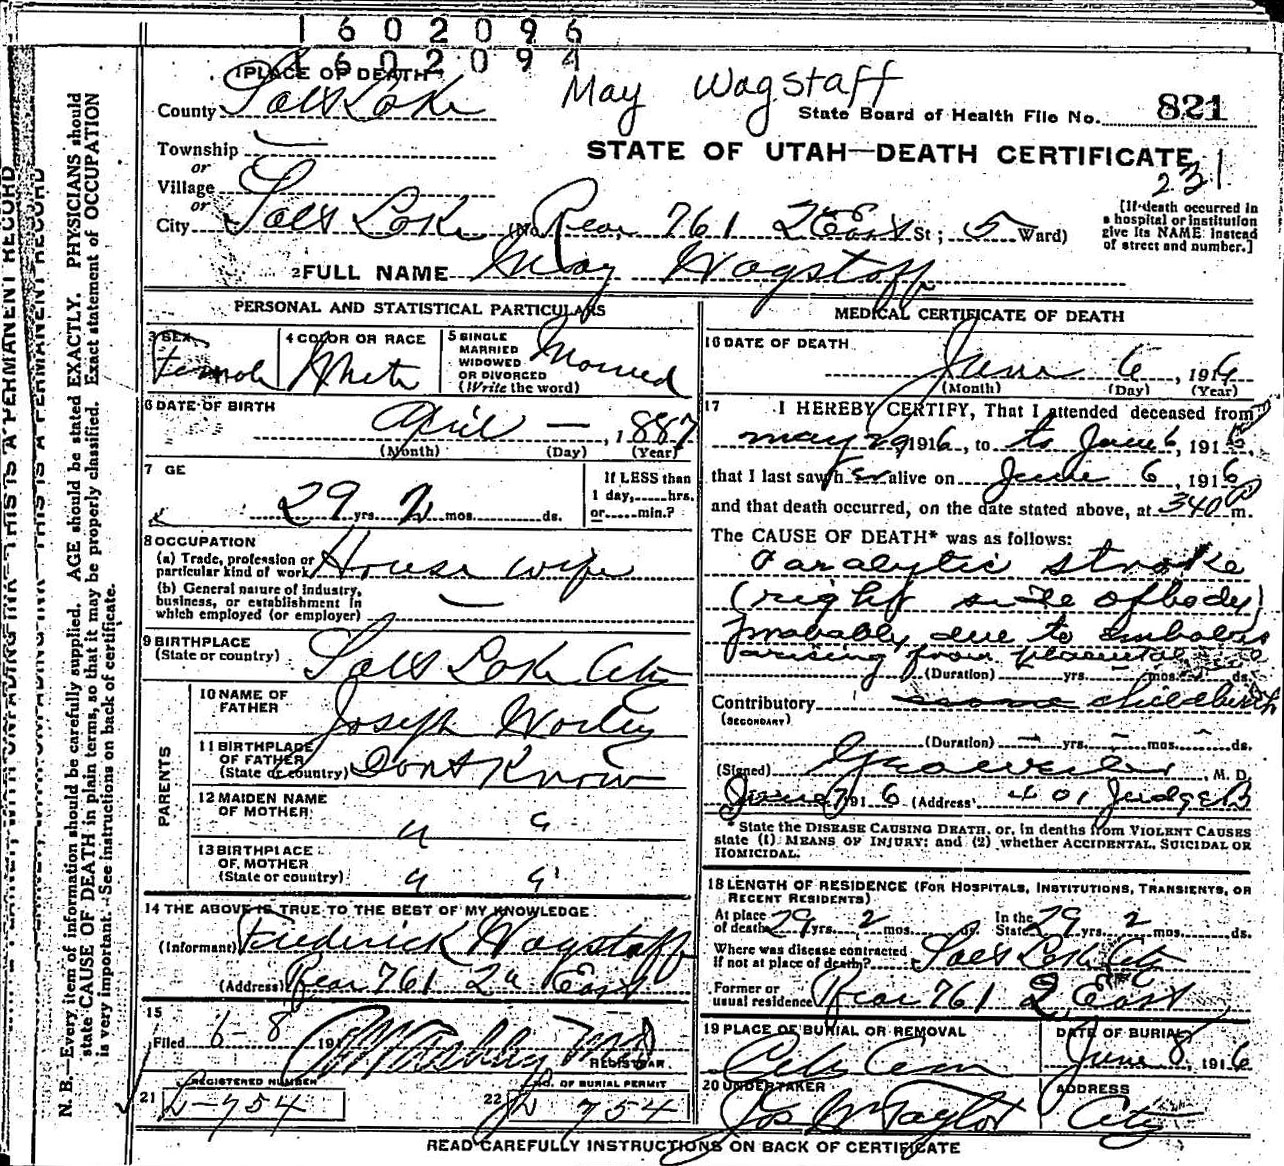 1602096
1602094
1 PLACE OF DEATH
May Wagstaff
County Salt Lake
State Board of Health File No. 821
Township —
STATE OF UTAH—DEATH CERTIFICATE
or
Village
231
or
City Salt Lake (No. Rear 761 2d East St; 5 Ward)
[If death occurred in a hospital or institution give its NAME instead of street and number.]
2 FULL NAME May Wagstaff
PERSONAL AND STATISTICAL PARTICULARS
3 SEX Female
4 COLOR OR RACE White
5 SINGLE MARRIED WIDOWED OR DIVORCED (Write the word) Married
6 DATE OF BIRTH April — , 1887
(Month) (Day) (Year)
7 GE 29 yrs. 2 mos. ds.
If LESS than 1 day, hrs. or min.?
8 OCCUPATION
(a) Trade, profession or particular kind of work House wife
(b) General nature of industry, business, or establishment in which employed (or employer) —
9 BIRTHPLACE (State or country) Salt Lake City
PARENTS
10 NAME OF FATHER Joseph Worley
11 BIRTHPLACE OF FATHER (State or country) Dont Know
12 MAIDEN NAME OF MOTHER " "
13 BIRTHPLACE OF MOTHER (State or country) " "
14 THE ABOVE IS TRUE TO THE BEST OF MY KNOWLEDGE
(Informant) Frederick Wagstaff
(Address) Rear 761 2d East
15
Filed 6-8 191 M.D.
REGISTRAR
REGISTERED NUMBER
21 L-754
NO. OF BURIAL PERMIT
22 L 754
MEDICAL CERTIFICATE OF DEATH
16 DATE OF DEATH
June 6, 1916
(Month) (Day) (Year)
17 I HEREBY CERTIFY, That I attended deceased from
may 29 1916, to to June 6, 1916
that I last saw her alive on June 6, 1916
and that death occurred, on the date stated above, at 340 P m.
The CAUSE OF DEATH* was as follows:
Paralytic stroke
(right side of body)
probably due to embolus
arising from placental
(Duration) yrs. mos. ds.
Contributory childbirth
(SECONDARY)
(Duration) — yrs. — mos. — ds.
(Signed) M. D.
June 7 1916 (Address) 401 Judge B
*State the DISEASE CAUSING DEATH, or, in deaths from VIOLENT CAUSES
state (1) MEANS OF INJURY; and (2) whether ACCIDENTAL, SUICIDAL OR
HOMICIDAL.
18 LENGTH OF RESIDENCE (FOR HOSPITALS, INSTITUTIONS, TRANSIENTS, OR
RECENT RESIDENTS)
At place of death 29 yrs. 2 mos. ds. In the State 29 yrs. 2 mos. ds.
Where was disease contracted if not at place of death? Salt Lake City
Former or usual residence Rear 761 2 East
19 PLACE OF BURIAL OR REMOVAL
City Cem
DATE OF BURIAL
June 8, 1916
20 UNDERTAKER
Jos Wm Taylor
ADDRESS
City
READ CAREFULLY INSTRUCTIONS ON BACK OF CERTIFICATE
N. B.—Every item of information should be carefully supplied. AGE should be stated EXACTLY. PHYSICIANS should
state CAUSE OF DEATH in plain terms, so that it may be properly classified. Exact statement of OCCUPATION
is very important. See instructions on back of certificate.
THIS IS A PERMANENT RECORD